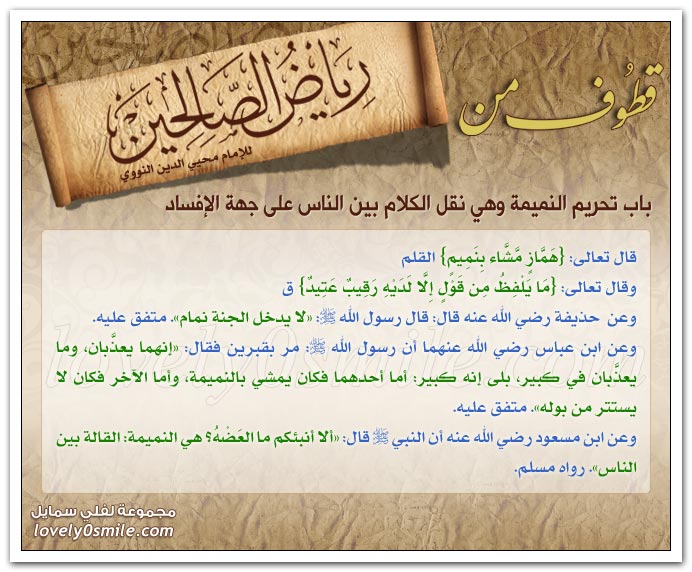 قطوف من
رِيَاضُ الصَّالِحِيْنَ
للإمام محيي الدين النووي
باب تحريم النميمة وهي نقل الكلام بين الناس على جهة الإفساد
قال تعالى: {هَمَّازٍ مَّشَّاء بِنَمِيمٍ} القلم
وقال تعالى: {مَا يَلْفِظُ مِن قَوْلٍ إِلَّا لَدَيْهِ رَقِيبٌ عَتِيدٌ} ق
وعن حذيفة رضي الله عنه قال: قال رسول الله ﷺ: «لا يدخل الجنة نمام». متفق عليه.
وعن ابن عباس رضي الله عنهما أن رسول الله ﷺ: مر بقبرين فقال: «إنهما يعذَّبان، وما
يعذَّبان في كبير، بلى إنه كبير: أما أحدهما فكان يمشي بالنميمة، وأما الآخر فكان لا
يستتر من بوله». متفق عليه.
وعن ابن مسعود رضي الله عنه أن النبي ﷺ قال: «ألا أنبئكم ما العَضْهُ؟ هي النميمة: القالة بين
الناس». رواه مسلم.
مجموعة لفلي سمايل
lovely0smile.com